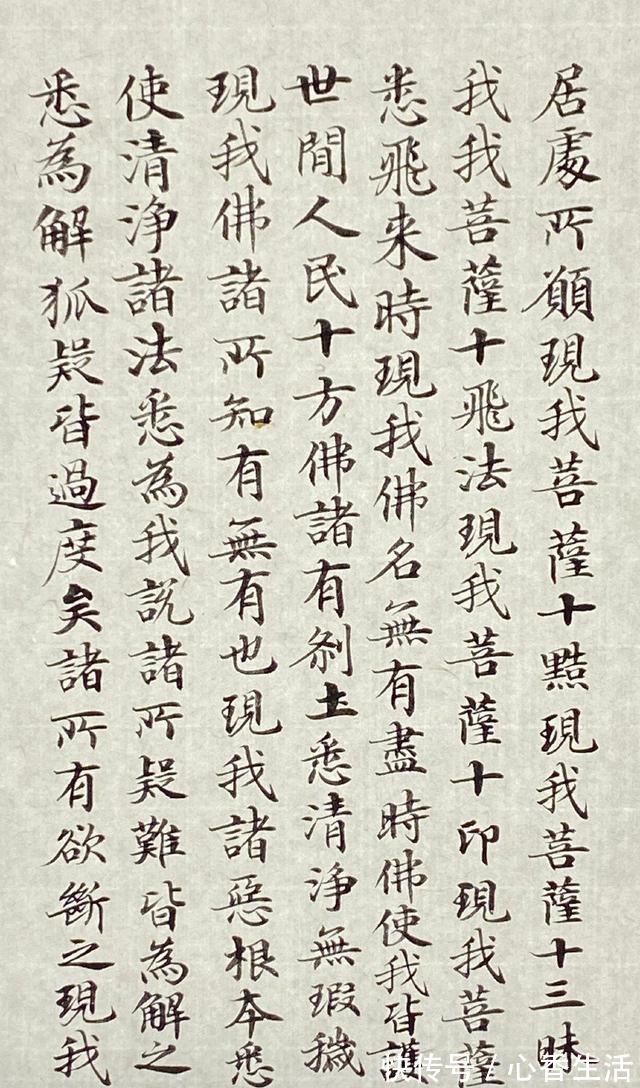 居處所願現我菩薩十黠現我菩薩十三昧
我我菩薩十飛法現我菩薩十印現我菩薩
悉飛来時現我佛名無有盡時佛使我皆護
世間人民十方佛諸有剎土悉清淨無瑕穢
現我佛諸所知有無有也現我諸惡根本悉
使清淨諸法悉為我説諸所疑難皆為解之
悉為解狐疑皆過度矣諸所有欲斷之現我
快传号/心香生活